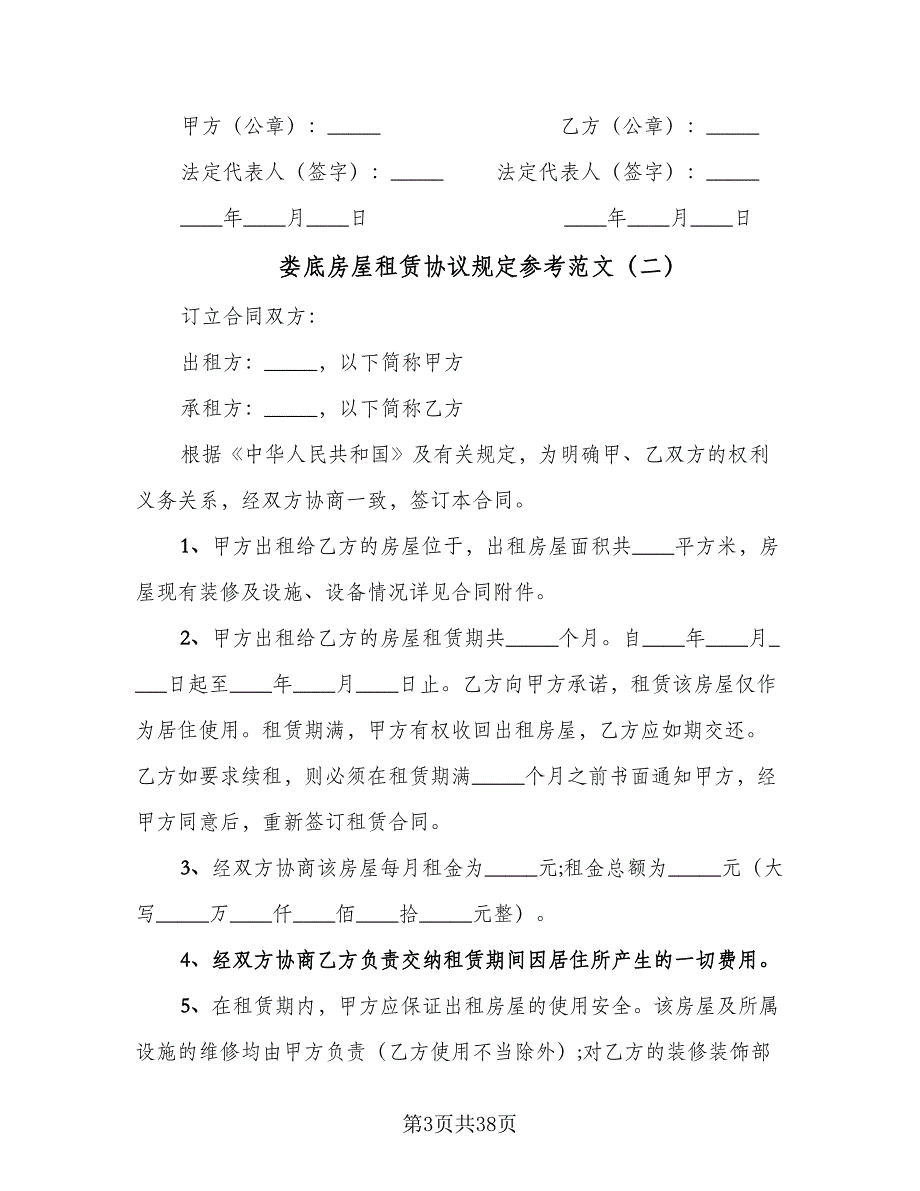 甲方（公章）：_____　　　　　　　　　乙方（公章）：_____
法定代表人（签字）：_____　　　法定代表人（签字）：_____
____年____月____日　　　　　　　　　　____年____月____日
娄底房屋租赁协议规定参考范文（二）
订立合同双方：
出租方：_____，以下简称甲方
承租方：_____，以下简称乙方
根据《中华人民共和国》及有关规定，为明确甲、乙双方的权利
义务关系，经双方协商一致，签订本合同。
1、甲方出租给乙方的房屋位于，出租房屋面积共____平方米，房
屋现有装修及设施、设备情况详见合同附件。
2、甲方出租给乙方的房屋租赁期共_____个月。自____年____月_
___日起至____年____月____日止。乙方向甲方承诺，租赁该房屋仅作
为居住使用。租赁期满，甲方有权收回出租房屋，乙方应如期交还。
乙方如要求续租，则必须在租赁期满_____个月之前书面通知甲方，经
甲方同意后，重新签订租赁合同。
3、经双方协商该房屋每月租金为_____元;租金总额为_____元（大
写_____万____仟____佰____拾_____元整）。
4、经双方协商乙方负责交纳租赁期间因居住所产生的一切费用。
5、在租赁期内，甲方应保证出租房屋的使用安全。该房屋及所属
设施的维修均由甲方负责（乙方使用不当除外）;对乙方的装修装饰部
第3页共38页